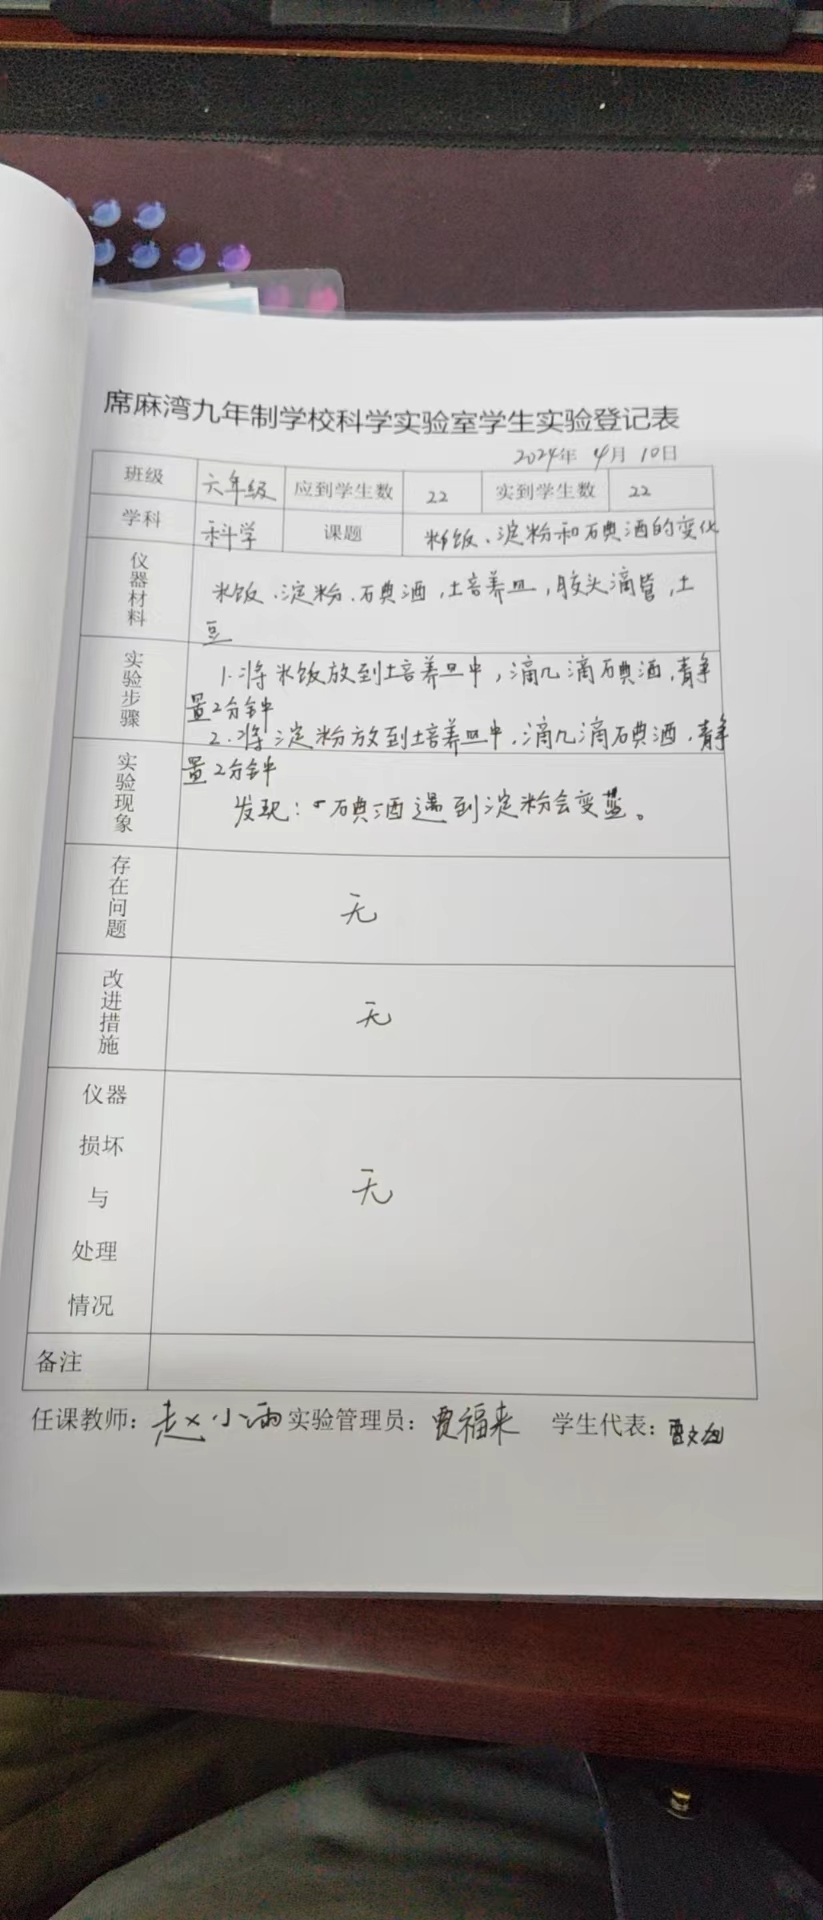 席麻湾九年制学校科学实验室学生实验登记表
2024年 4月 10日
班级 六年级 应到学生数 22 实到学生数 22
学科 科学 课题 米饭、淀粉和碘酒的变化
仪器材料 米饭、淀粉、碘酒,培养皿,胶头滴管,土
豆
实验步骤 1.将米饭放到培养皿中,滴几滴碘酒,静
置2分钟
2.将淀粉放到培养皿中,滴几滴碘酒,静
置2分钟
实验现象 发现:碘酒遇到淀粉会变蓝。
存在问题 无
改进措施 无
仪器
损坏
与
处理
情况
无
备注
任课教师:赵小雨 实验管理员:贾福来 学生代表: